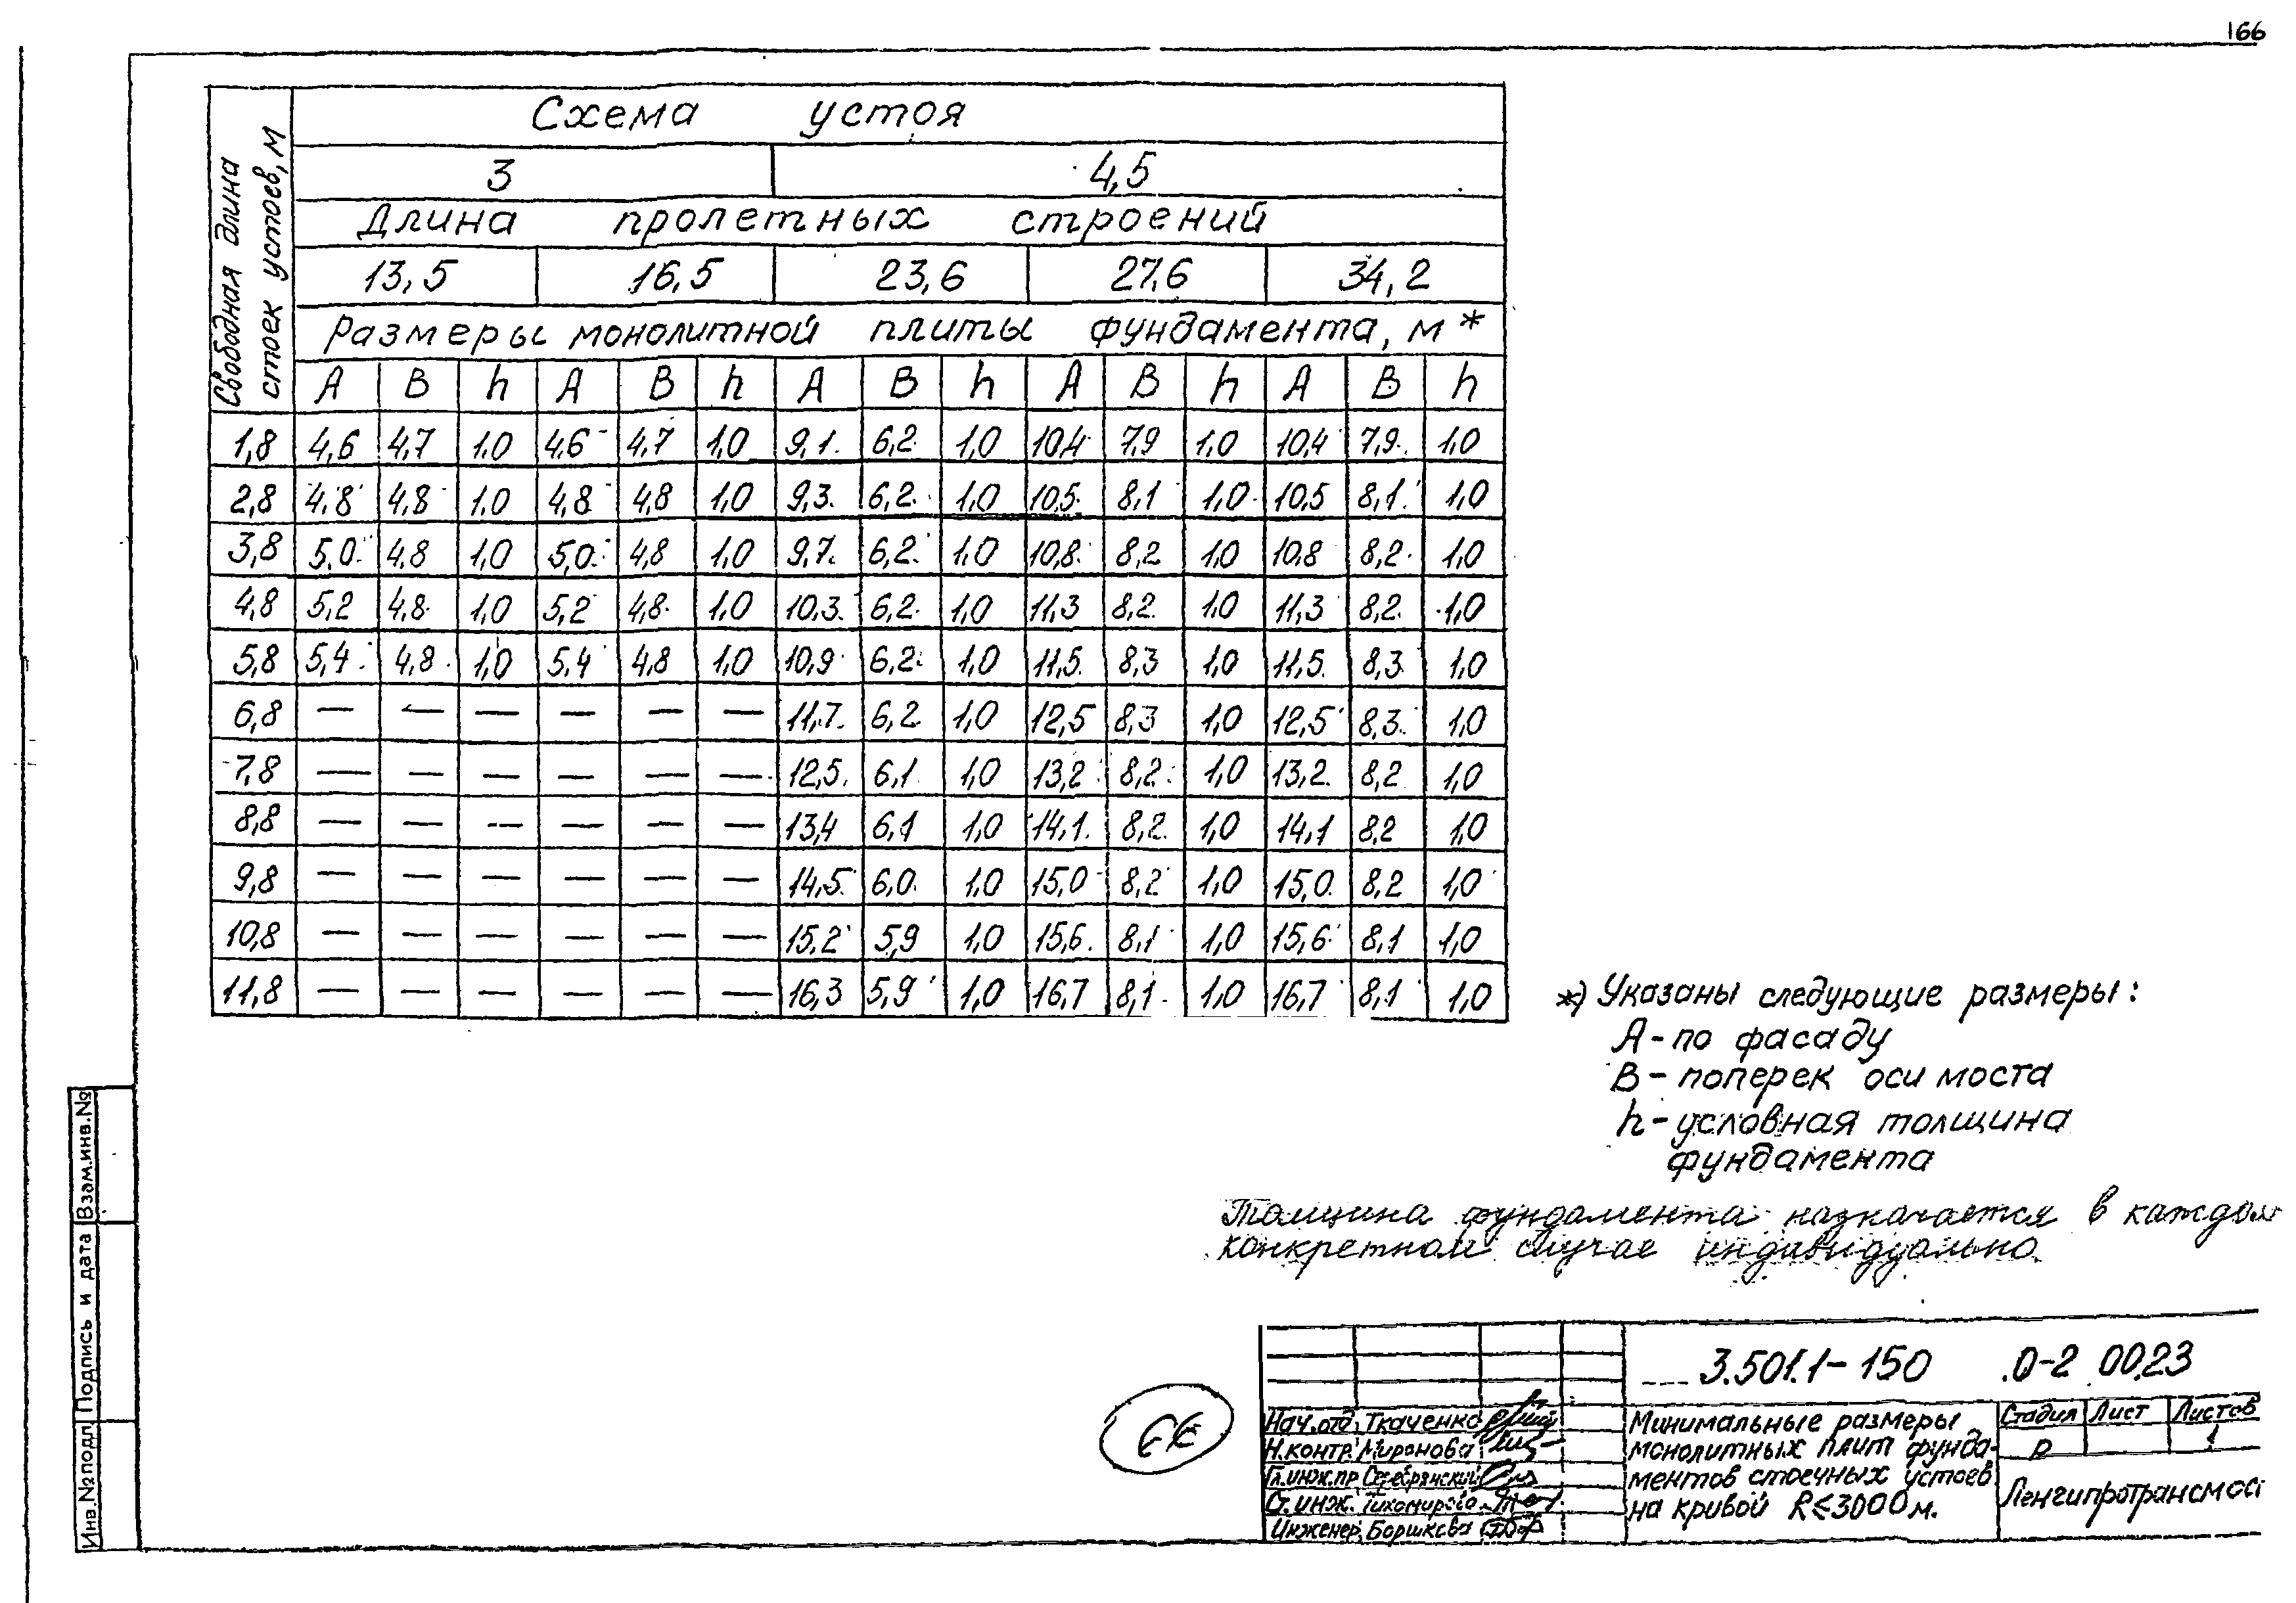 166
Свободная длина
стоек устоев, м
Схема устоя
3 4,5
Длина пролетных строений
13,5 16,5 23,6 27,6 34,2
Размеры монолитной плиты фундамента, м *
А В h А В h А В h А В h А В h
1,8 4,6 4,7 1,0 4,6 4,7 1,0 9,1 6,2 1,0 10,4 7,9 1,0 10,4 7,9 1,0
2,8 4,8 4,8 1,0 4,8 4,8 1,0 9,3 6,2 1,0 10,5 8,1 1,0 10,5 8,1 1,0
3,8 5,0 4,8 1,0 5,0 4,8 1,0 9,7 6,2 1,0 10,8 8,2 1,0 10,8 8,2 1,0
4,8 5,2 4,8 1,0 5,2 4,8 1,0 10,3 6,2 1,0 11,3 8,2 1,0 11,3 8,2 1,0
5,8 5,4 4,8 1,0 5,4 4,8 1,0 10,9 6,2 1,0 11,5 8,3 1,0 11,5 8,3 1,0
6,8 — — — — — — 11,7 6,2 1,0 12,5 8,3 1,0 12,5 8,3 1,0
7,8 — — — — — — 12,5 6,1 1,0 13,2 8,2 1,0 13,2 8,2 1,0
8,8 — — — — — — 13,4 6,1 1,0 14,1 8,2 1,0 14,1 8,2 1,0
9,8 — — — — — — 14,5 6,0 1,0 15,0 8,2 1,0 15,0 8,2 1,0
10,8 — — — — — — 15,2 5,9 1,0 15,6 8,1 1,0 15,6 8,1 1,0
11,8 — — — — — — 16,3 5,9 1,0 16,7 8,1 1,0 16,7 8,1 1,0
*) Указаны следующие размеры:
А - по фасаду
В - поперек оси моста
h - условная толщина
фундамента
Толщина фундамента назначается в каждом
конкретном случае индивидуально
Инв.№подл. Подпись и дата Взам.инв.№
3.501.1-150 .0-2 00.23
Нач.отд. Ткаченко
Н.контр. Миронова
Гл.инж.пр. Серебрянский
Ст.инж. Тихомирова
Инженер Боршкова
Минимальные размеры
монолитных плит фунда-
ментов стоечных устоев
на кривой R≤3000м.
Стадия Лист Листов
Р 1
Ленгипротрансмост